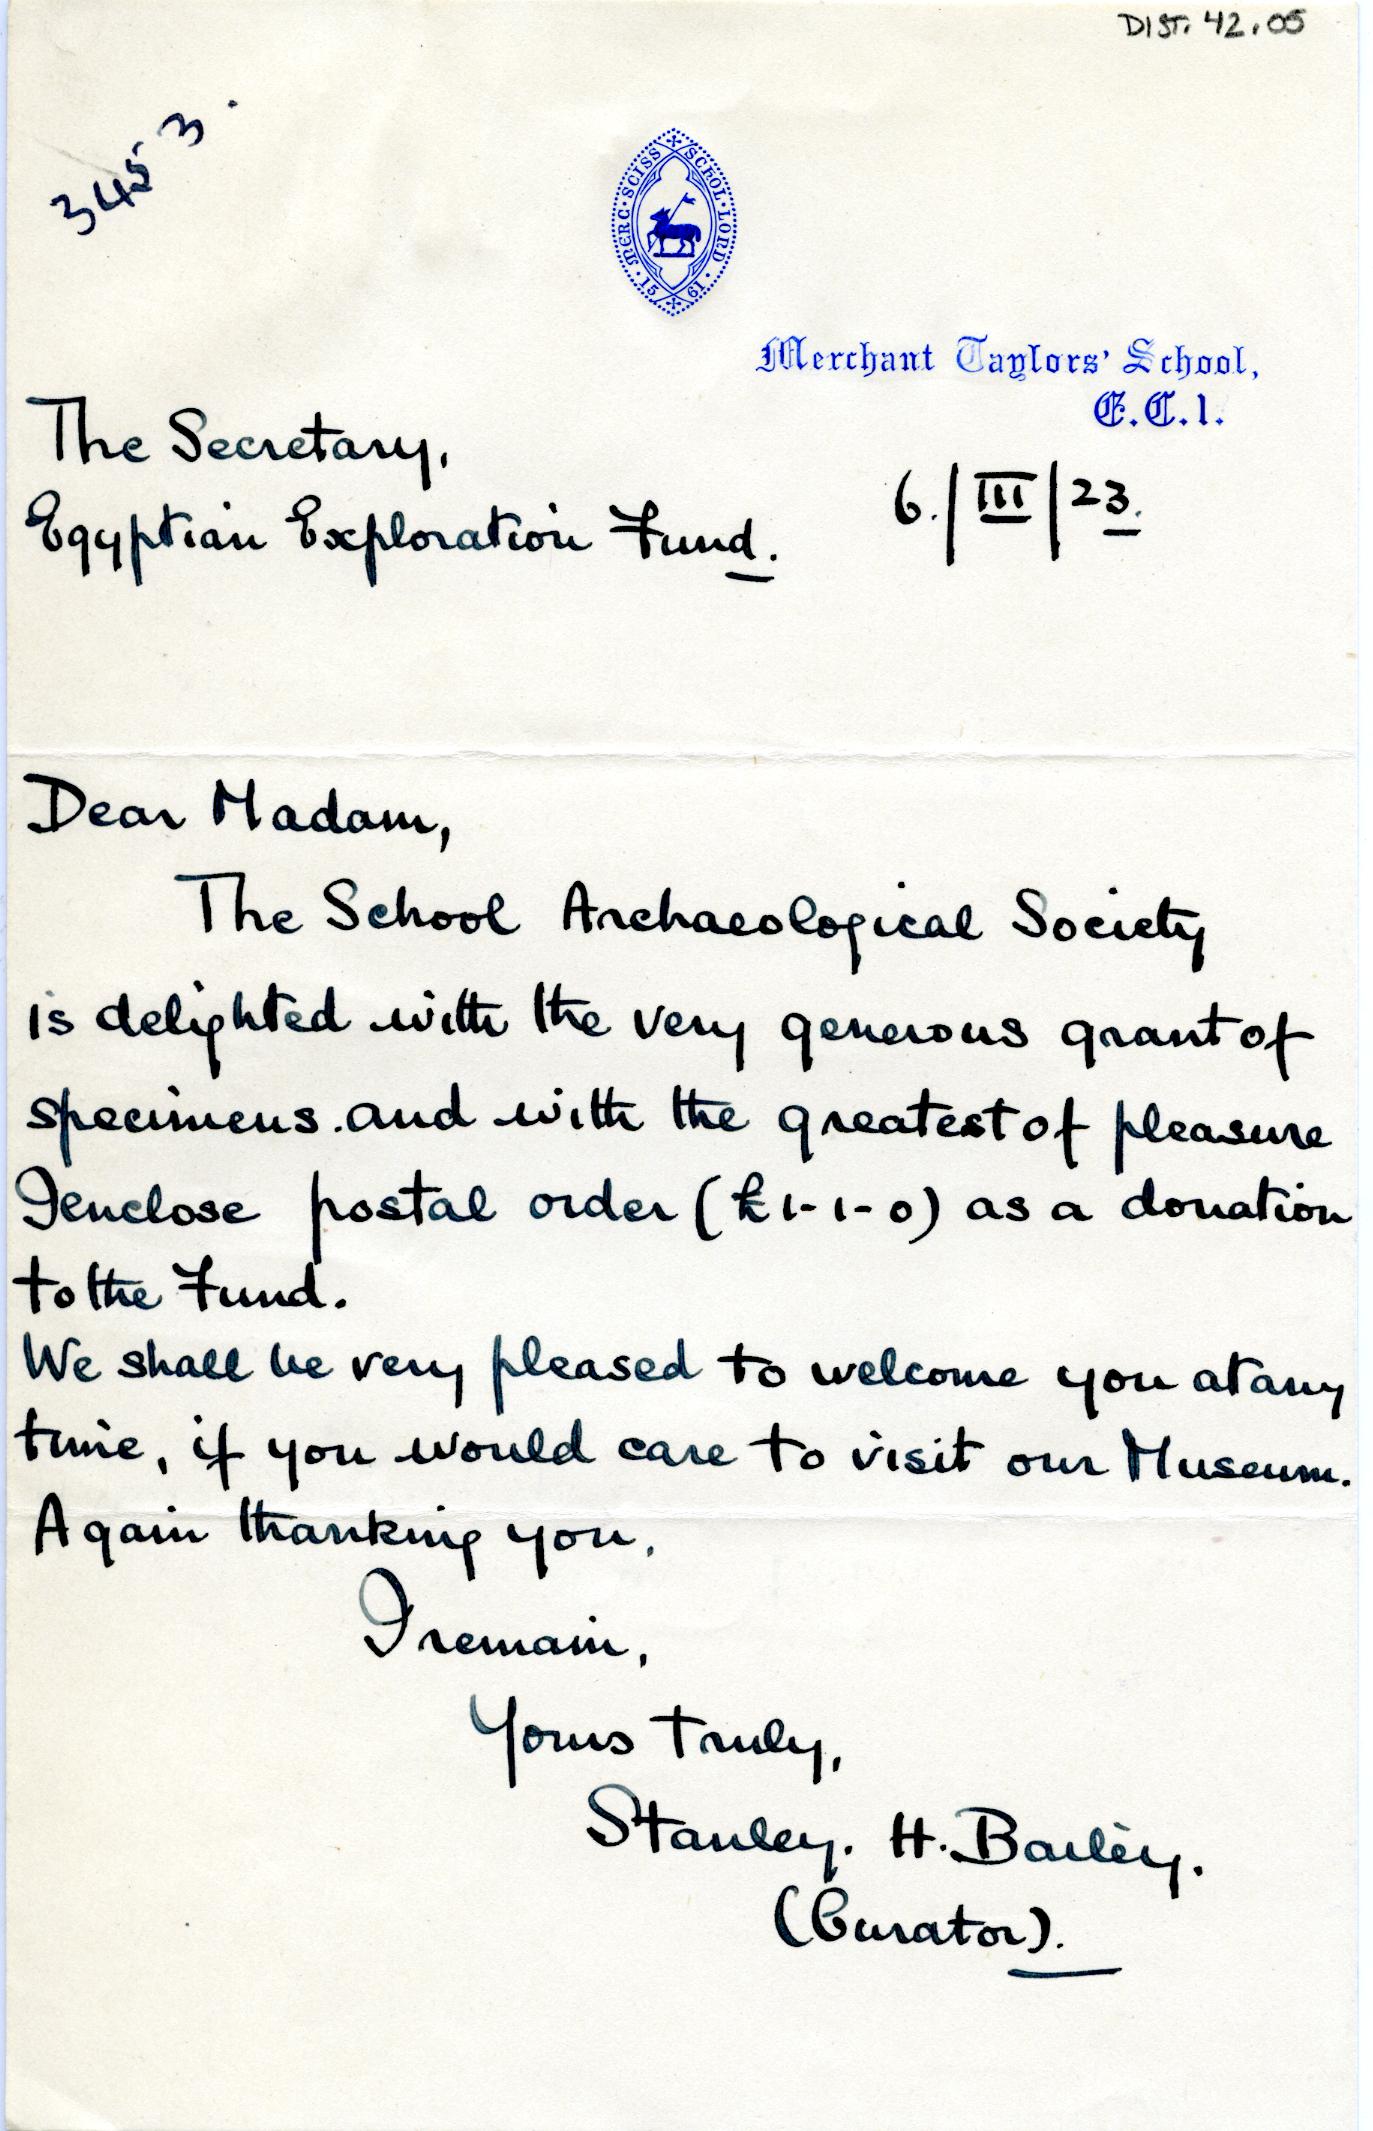 DIST. 42.05
3453.
MERC · SCISS · SCHOL · LOND · 1561
Merchant Taylors' School,
E.C.1.
The Secretary,
Egyptian Exploration Fund.
6./III/23.
Dear Madam,
The School Archaeological Society
is delighted with the very generous grant of
specimens. and with the greatest of pleasure
I enclose postal order (£1-1-0) as a donation
to the Fund.
We shall be very pleased to welcome you at any
time, if you would care to visit our Museum.
Again thanking you,
I remain,
Yours truly,
Stanley. H. Bailey.
(Curator).